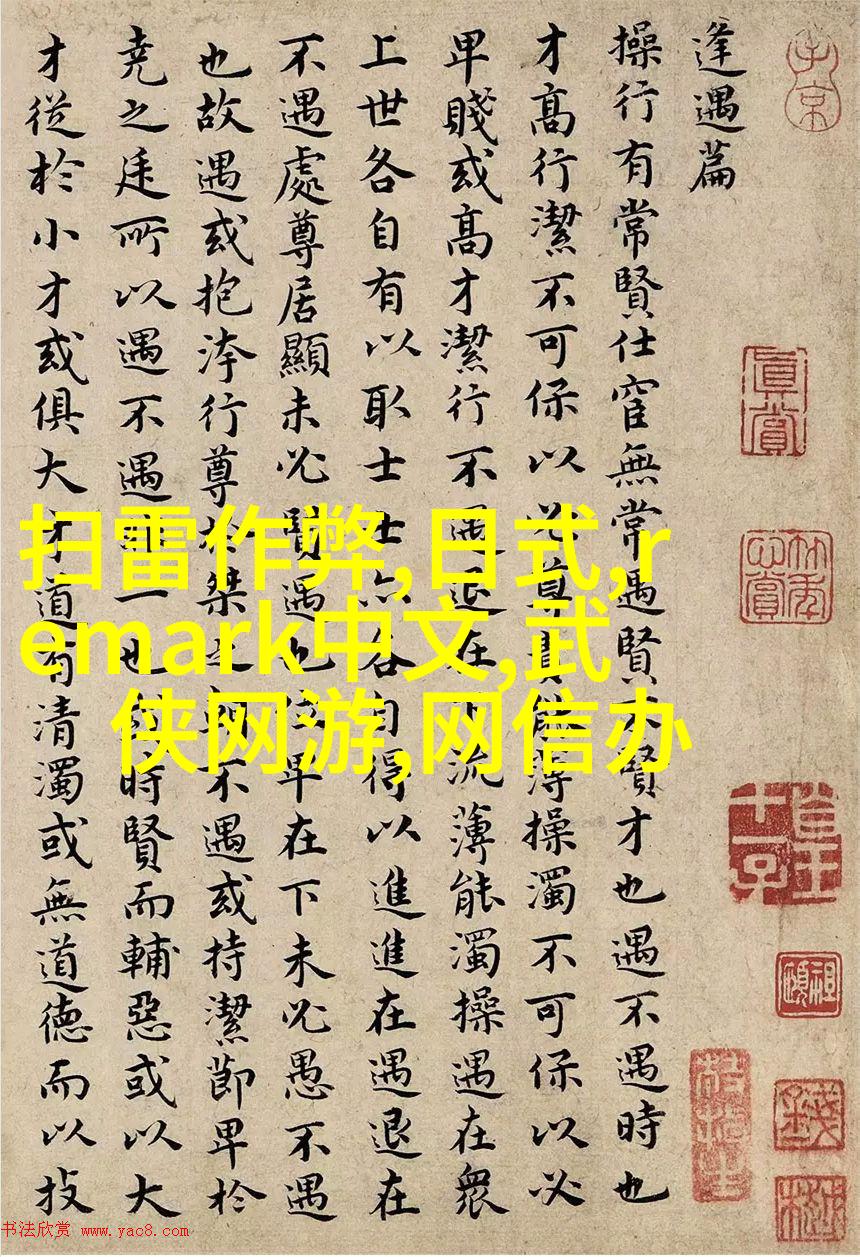 逢遇篇
操行有常賢仕宦無常遇賢不賢才也遇不遇時也
才髙行潔不可保以必尊貴能薄操濁不可保以必
卑賤或髙才潔行不遇退在下流薄能濁操遇在衆
上世各自有以取士士亦各自得以進進在遇退在
不遇處尊居顯未必賢遇也位卑在下未必愚不遇
也故遇或抱洿行尊於桀之朝不遇或持潔節卑於
堯之廷所以遇不遇非一也或時賢而輔惡或以大
才從於小才或俱大才道有清濁或無道德而以技
子京
眞賞
扫雷作弊,日式,r
emark中文,武
侠网游,网信办
书法欣赏 www.yac8.com